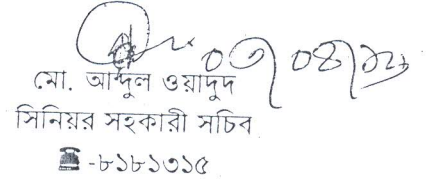 ০৭/০৪/২১
মো. আব্দুল ওয়াদুদ
সিনিয়র সহকারী সচিব
☎ -৮১৮১৩১৫